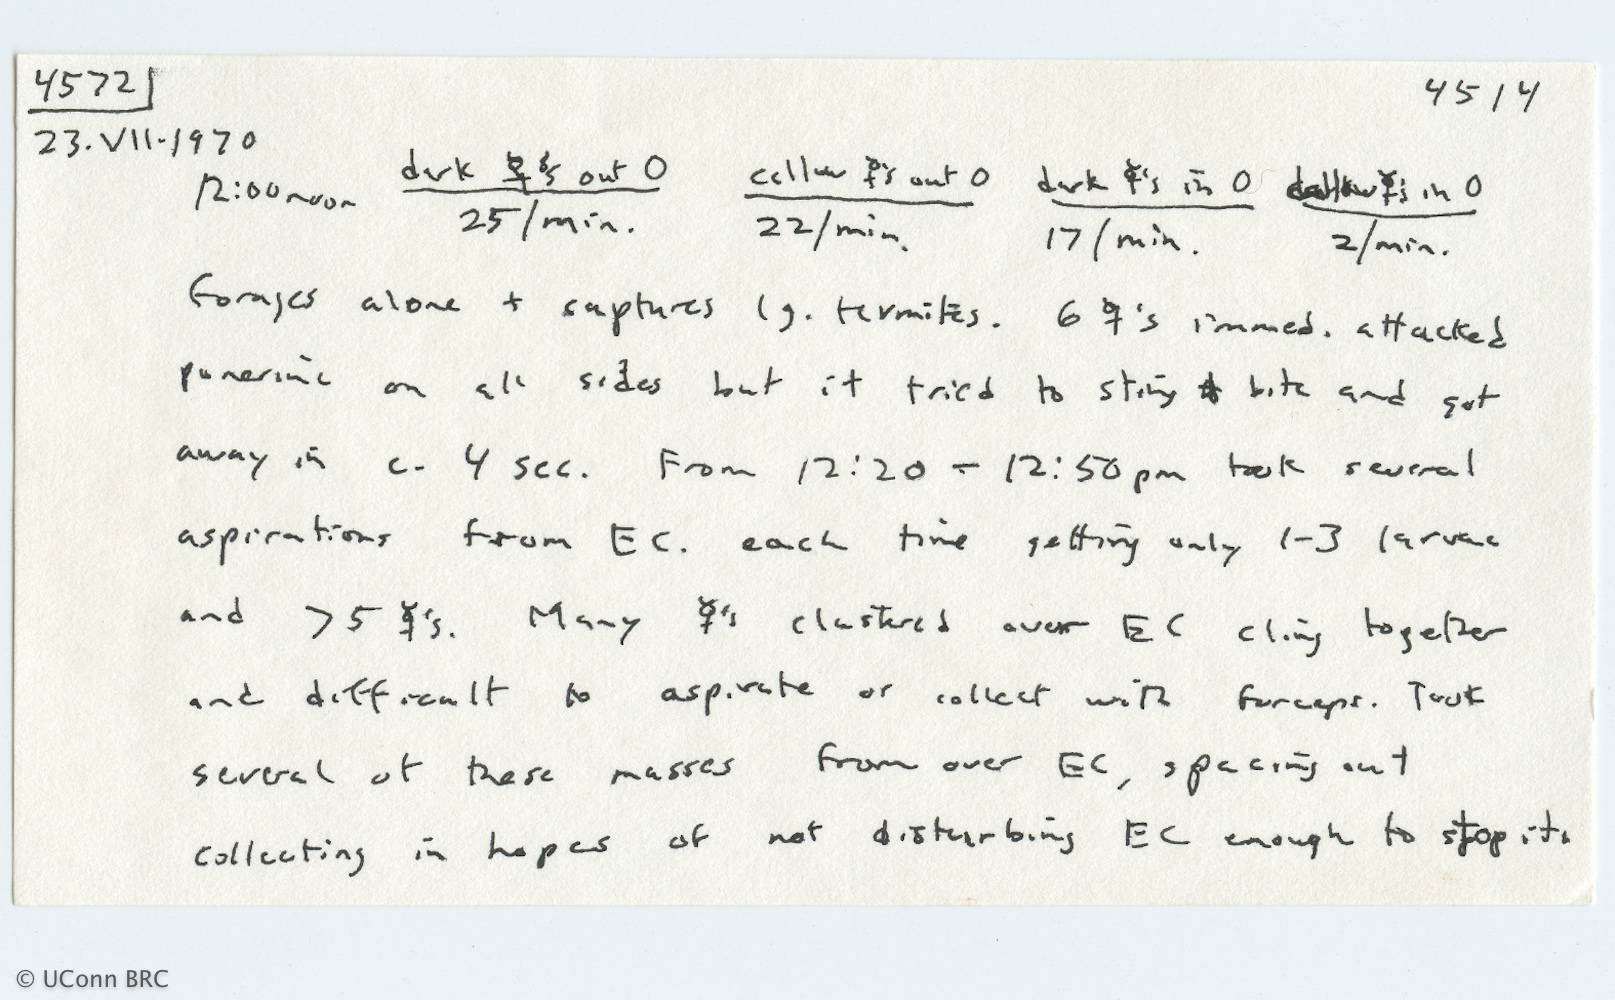 4572 4514
23.VII.1970
12:00 noon dark ☿'s out 0 callow ☿'s out 0 dark ☿'s in 0 callow ☿'s in 0
25/min. 22/min. 17/min. 2/min.
Forages alone + captures lg. termites. 6 ☿'s immed. attacked
ponerine on all sides but it tried to sting & bite and got
away in c. 4 sec. From 12:20 - 12:50pm took several
aspirations from EC. each time getting only 1-3 larvae
and >5 ☿'s. Many ☿'s clustered over EC cling together
and difficult to aspirate or collect with forceps. Took
several of these masses from over EC, spacing out
collecting in hopes of not disturbing EC enough to stop its
© UConn BRC